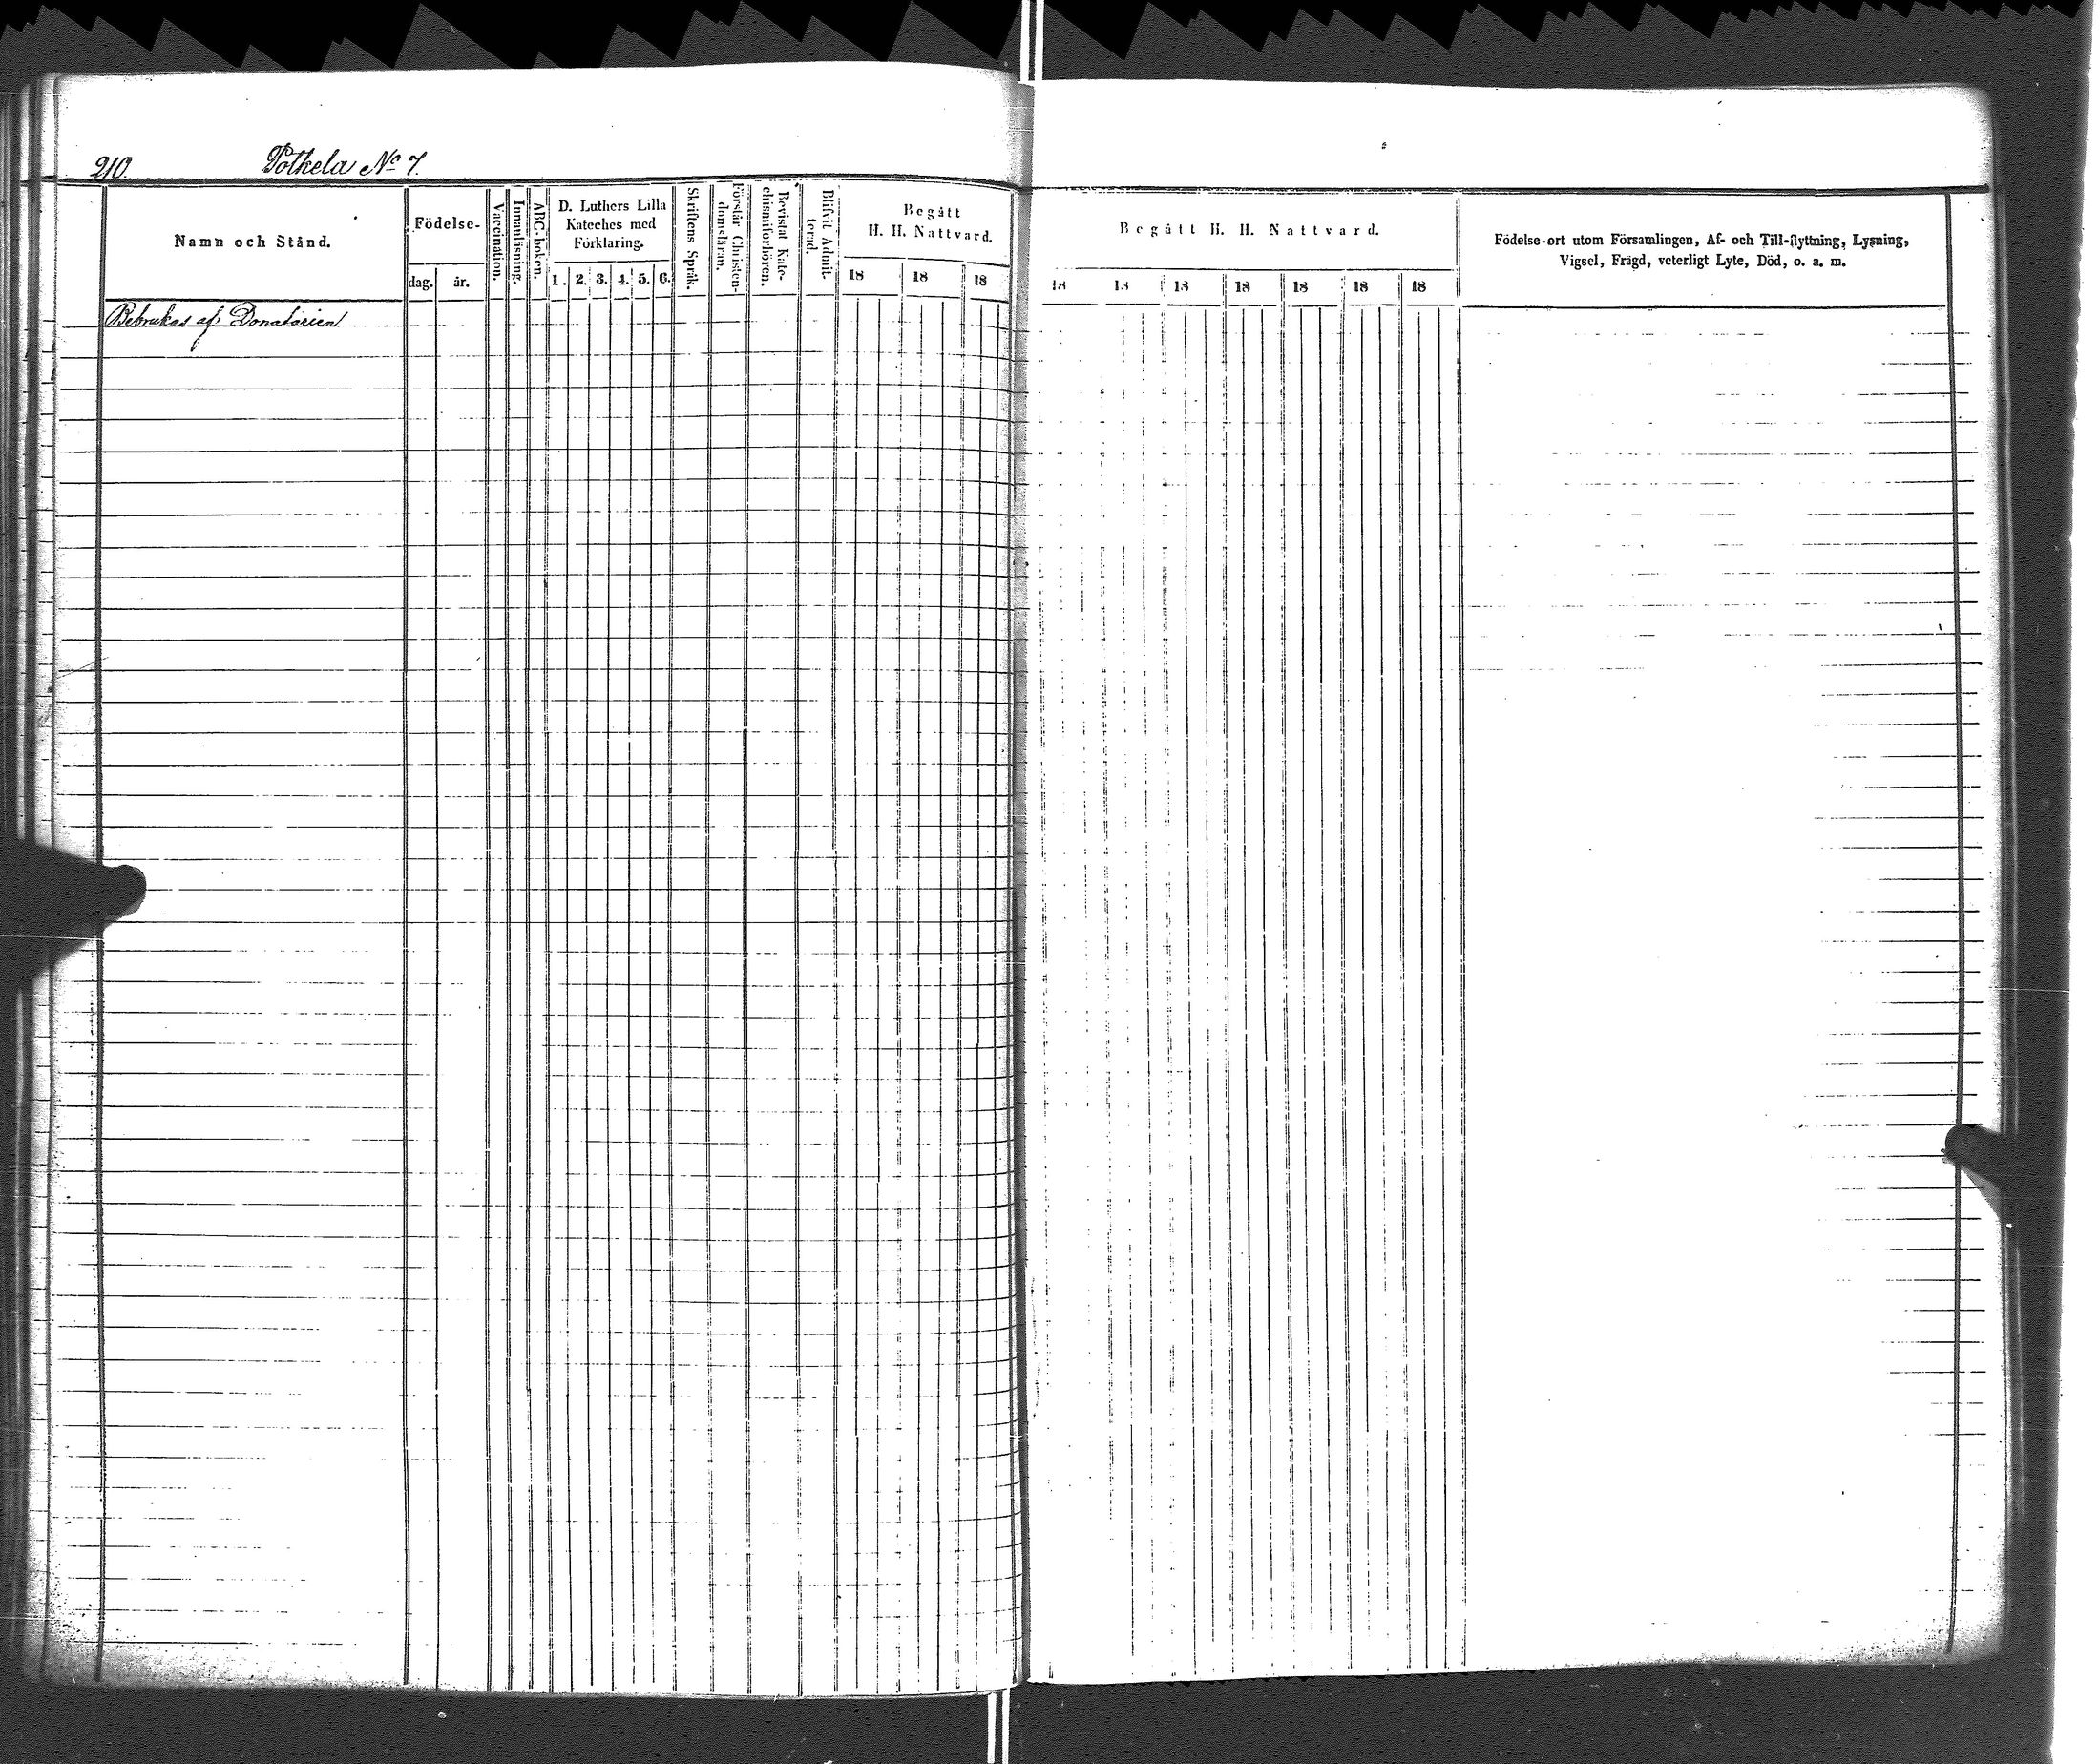 210.
Pothela No 7.
Namn och Stånd.
Födelse-
dag.
år.
Vaccination.
Innanläsning.
ABC-boken.
D. Luthers Lilla
Kateches med
Förklaring.
1. 2. 3. 4. 5. 6.
Skriftens Språk.
Förstår Christen-
domsläran.
Bevistat Kate-
chismiförhören.
Blifvit Admit-
terad.
Begått
H. H. Nattvard.
18 18 18
Begått H. H. Nattvard.
18 18 18 18 18 18 18
Födelse-ort utom Församlingen, Af- och Till-flyttning, Lysning,
Vigsel, Frägd, veterligt Lyte, Död, o. a. m.
Bebrukas af Donatorien